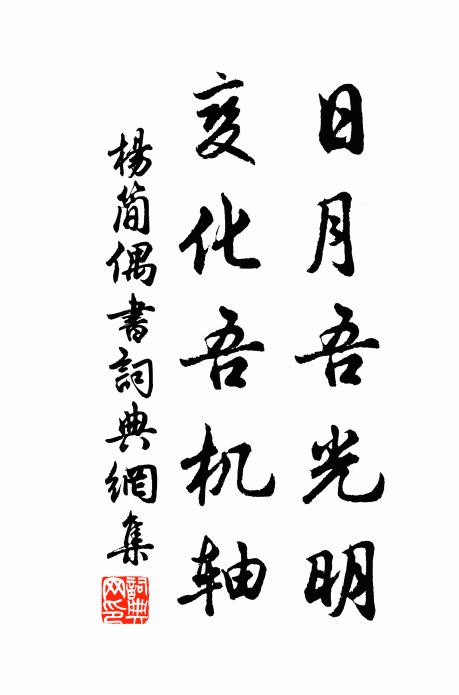 日月吾光明
变化吾机轴
楊简偶書詞典網集
詞典网印